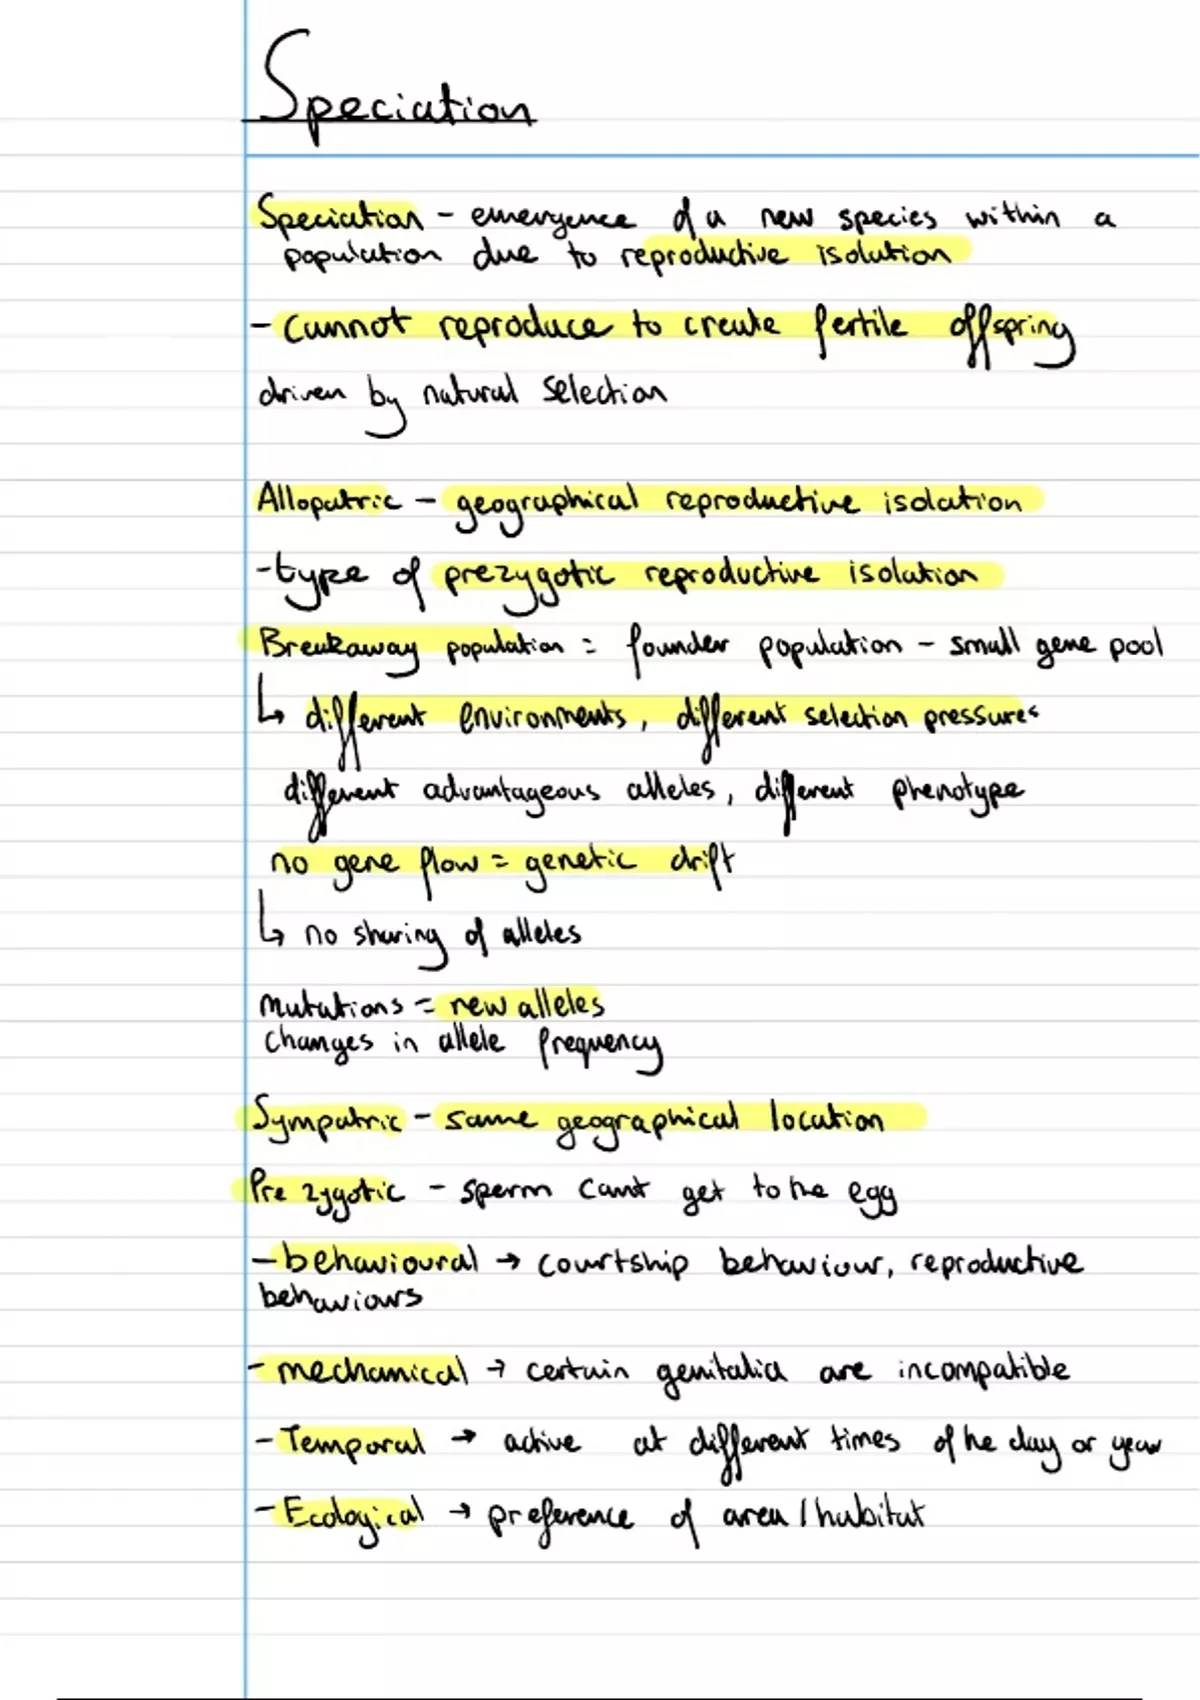 Speciation
Speciation - emergence of a new species within a
population due to reproductive isolation
- cannot reproduce to create fertile offspring
driven by natural selection
Allopatric - geographical reproductive isolation
- type of prezygotic reproductive isolation
Breakaway population = founder population - small gene pool
↳ different environments, different selection pressures
different advantageous alleles, different phenotype
no gene flow = genetic drift
↳ no sharing of alleles
mutations = new alleles
changes in allele frequency
Sympatric - same geographical location
Pre zygotic - sperm cant get to the egg
- behavioural → courtship behaviour, reproductive
behaviours
- mechanical → certain genitalia are incompatible
- Temporal → active at different times of he day or year
- Ecological → preference of area / habitat